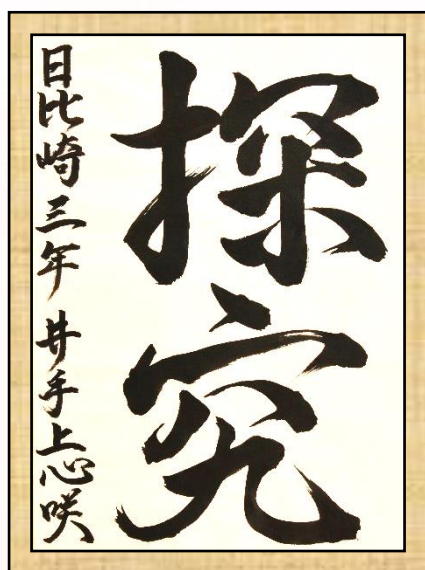 探究
日比崎三年 井手上心咲